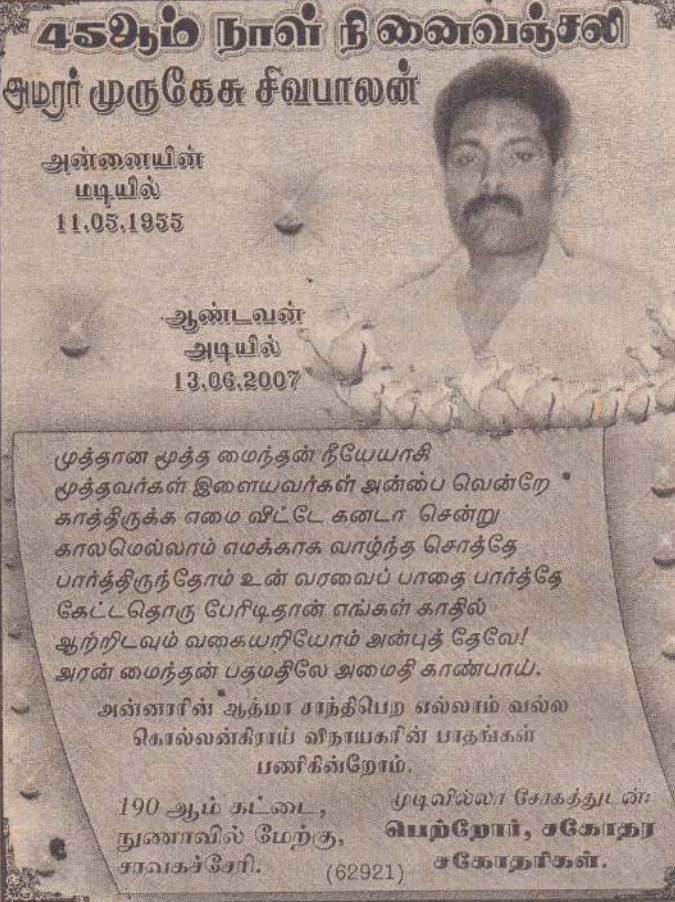 45ஆம் நாள் நினைவஞ்சலி
அமரர் முருகேசு சிவபாலன்
அன்னையின்
மடியில்
11.05.1955
ஆண்டவன்
அடியில்
13.06.2007
முத்தான மூத்த மைந்தன் நீயேயாகி
மூத்தவர்கள் இளையவர்கள் அன்பை வென்றே
காத்திருக்க எமை விட்டே கனடா சென்று
காலமெல்லாம் எமக்காக வாழ்ந்த சொத்தே
பார்த்திருந்தோம் உன் வரவைப் பாதை பார்த்தே
கேட்டதொரு பேரிடிதான் எங்கள் காதில்
ஆற்றிடவும் வகையறியோம் அன்புத் தேவே!
அரன் மைந்தன் பதமதிலே அமைதி காண்பாய்.
அன்னாரின் ஆத்மா சாந்திபெற எல்லாம் வல்ல
கொல்லன்கிராய் விநாயகரின் பாதங்கள்
பணிகின்றோம்.
190 ஆம் கட்டை,
நுணாவில் மேற்கு,
சாவகச்சேரி.
(62921)
முடிவில்லா சோகத்துடன்:
பெற்றோர், சகோதர
சகோதரிகள்.